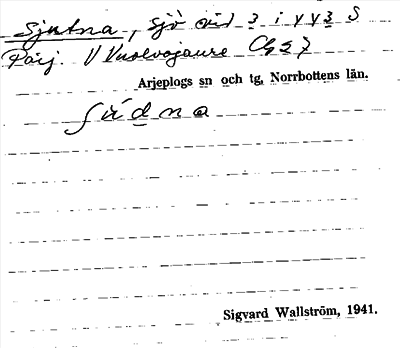 Sjutna, sjö vid 3 i VV3 S
Parj. V Vuolvojaure Cg 27
Arjeplogs sn och tg, Norrbottens län.
ʃú̀dna
Sigvard Wallström, 1941.